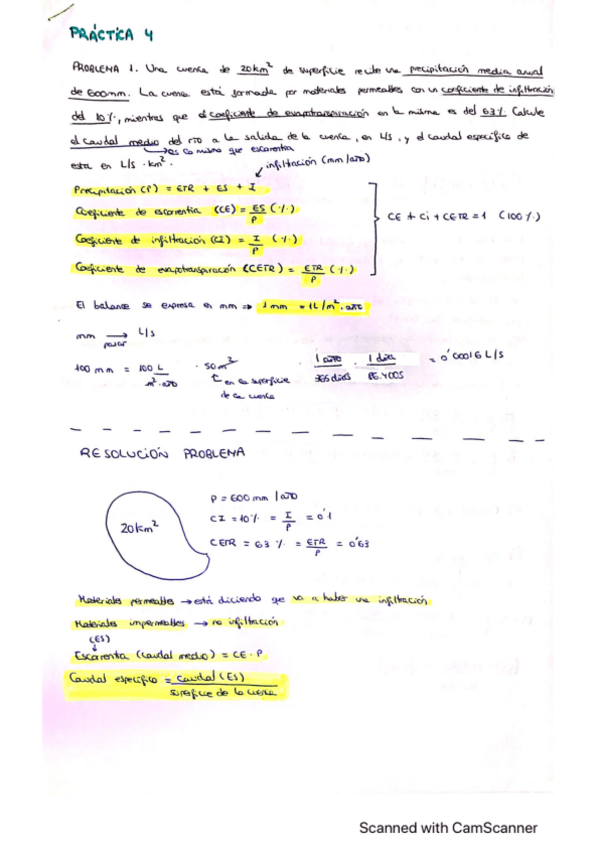 PRÁCTICA 4
PROBLEMA 1. Una cuenca de 20km² de superficie recibe una precipitación media anual
de 600mm. La cuenca está formada por materiales permeables con un coeficiente de infiltración
del 10%, mientras que el coeficiente de evapotranspiración en la misma es del 63%. Calcule
el caudal medio del río a la salida de la cuenca, en L/s, y el caudal específico de
→ es lo mismo que escorrentía
esta en L/s · km².
infiltración (mm/año)
Precipitación (P) = ETR + ES + I
Coeficiente de escorrentía (CE) = ES/P (%)
CE + Ci + CETR = 1 (100%)
Coeficiente de infiltración (CI) = I/P (%)
Coeficiente de evapotranspiración (CETR) = ETR/P (%)
El balance se expresa en mm ⇒ 1 mm = 1L/m² · año
mm → L/s
pasar
100 mm = 100 L/m² · año · 50m² · 1 año/365 días · 1 día/86.400S = 0'00016 L/S
en la superficie
de la cuenca
RESOLUCIÓN PROBLEMA
20km²
P = 600 mm/año
CI = 10% = I/P = 0'1
CETR = 63% = ETR/P = 0'63
Materiales permeables → está diciendo que va a haber una infiltración
Materiales impermeables → no infiltración
(ES)
Escorrentía (caudal medio) = CE · P
Caudal específico = Caudal (ES)/superficie de la cuenca
Scanned with CamScanner